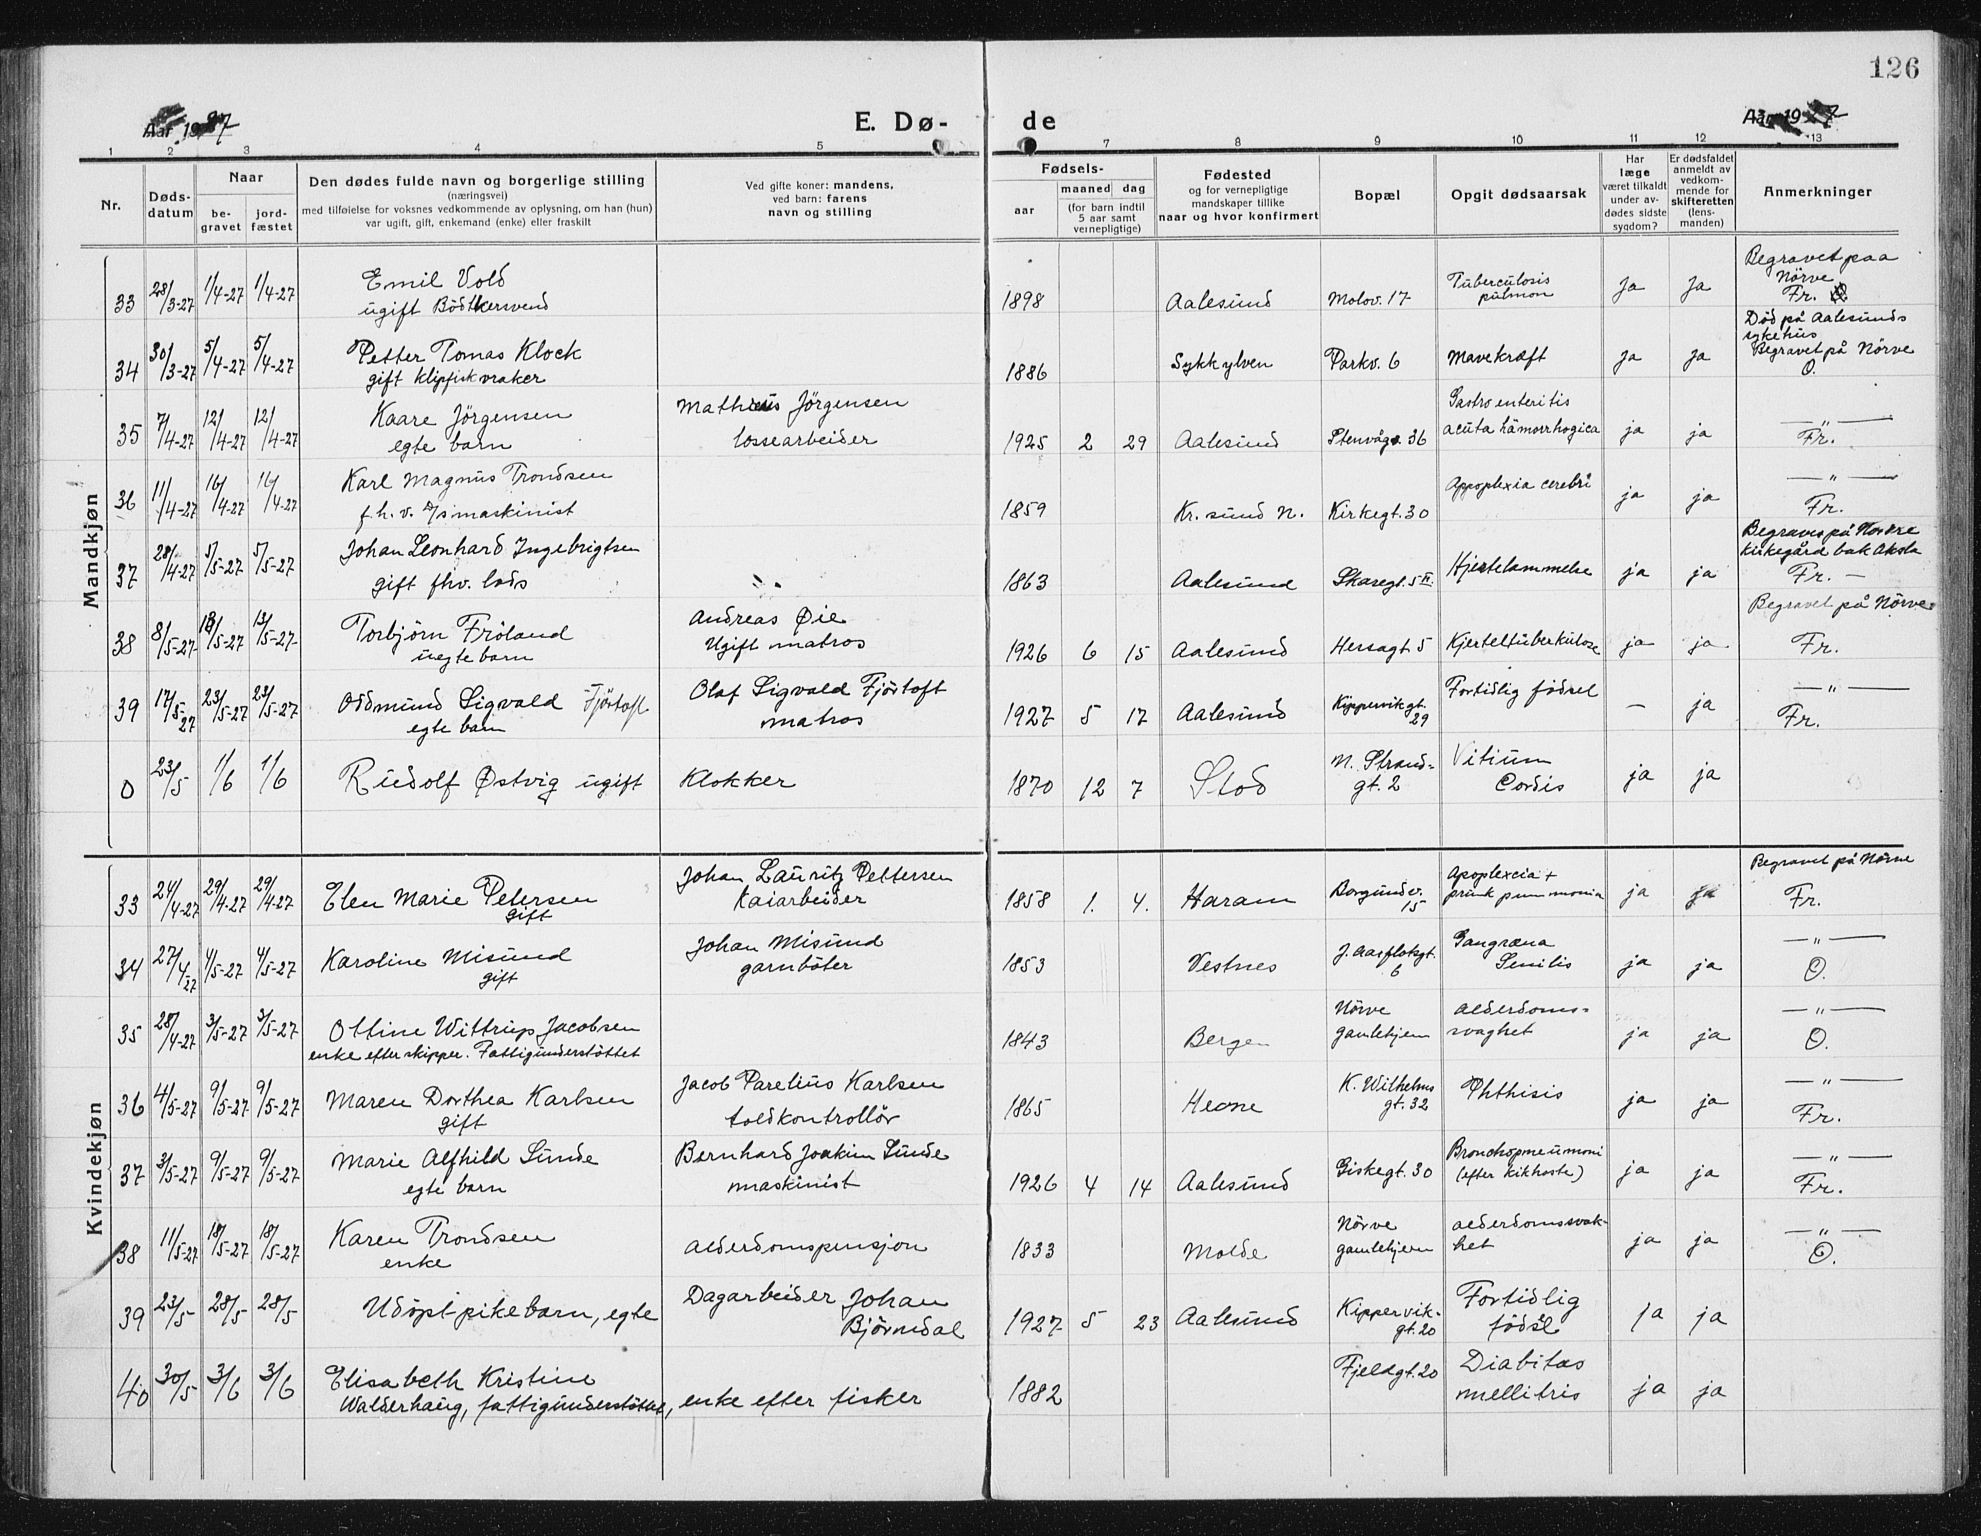 126
Aar 1927
E. Dø-
de
Aar 1927
1 2 3 4 5 7 8 9 10 11 12 13
Nr.
Døds-
datum
Naar
be-
gravet
jord-
fæstet
Den dødes fulde navn og borgerlige stilling
(næringsvei)
med tilføielse for voksnes vedkommende av oplysning, om han (hun)
var ugift, gift, enkemand (enke) eller fraskilt
Ved gifte koner: mandens,
ved barn: farens
navn og stilling
Fødsels-
aar
maaned dag
(for barn indtil
5 aar samt
vernepligtige)
Fødested
og for vernepligtige
mandskaper tillike
naar og hvor konfirmert
Bopæl
Opgit dødsaarsak
Har
læge
været tilkaldt
under av-
dødes sidste
sygdom?
Er dødsfaldet
anmeldt av
vedkom-
mende for
skifteretten
(lens-
manden)
Anmerkninger
Mandkjøn
33 28/3-27 1/4-27 1/4-27 Emil Vold
ugift Bødtkersvend
1898 Aalesund Molov. 17 Tuberculosis
pulmon
Ja Ja
Begravet paa
Nörve
Fr.
34 30/3-27 5/4-27 5/4-27 Petter Tomas Klock
gift klipfiskvraker
1886 Sykkylven Parkv. 6 Mavekræft ja ja
Død på Aalesunds
sykehus
Begravet på Nörve
O.
35 7/4-27 12/4-27 12/4-27 Kaare Jörgensen
egte barn
Mathias Jörgensen
lossearbeider
1925 2 29 Aalesund Stenvågv. 36
Gastroenteritis
acuta hämorrhogica
ja ja
—"—
Fr.
36 11/4-27 16/4-27 16/4-27 Karl Magnus Trondsen
f.h.v. D/s maskinist
1859 Kr. sund N. Kirkegt. 30 Appoplexia cerebri ja ja
—"—
Fr.
37 28/4-27 5/5-27 5/5-27 Johan Leonhard Ingebrigtsen
gift fhv. lods
1863 Aalesund Skaregt. 5 II. Hjertelammelse ja ja
Begraves på Norvre
kirkegård bak Aksla
Fr. —
38 8/5-27 13/5-27 13/5-27 Torbjörn Fröland
uegte barn
Andreas Øie
Ugift matros
1926 6 15 Aalesund Hersagt. 5 Kjerteltuberkulose ja ja
Begravet på Nörve
Fr.
39 17/5-27 23/5-27 23/5-27 Oddmund Sigvald Fjörtoft
egte barn
Olaf Sigvald Fjörtoft
matros
1927 5 17 Aalesund Kippervikgt.
29
Fortidlig födsel
— ja
—"—
Fr.
0 23/5 1/6 1/6 Rudolf Østvig ugift Klokker
1870 12 7 Stod N. Strand-
gt. 2
Vitium
Cordis
ja ja
Kvindekjøn
33 24/4-27 29/4-27 29/4-27 Elen Marie Petersen
gift
Johan Lauritz Pettersen
Kaiarbeider
1858 1. 4. Haram Borgundv.
15
Apoplexcia +
ja ja
Begravet på Nörve
Fr.
34 27/4-27 4/5-27 4/5-27 Karoline Misund
gift
Johan Misund
garnböter
1853 Vestnes J. Aasflotsgt.
6
Gangræna
Senilis
ja ja
—"—
O.
35 28/4-27 3/5-27 3/5-27 Ottine Wittrup Jacobsen
enke efter skipper. Fattigunderstöttet
1843 Bergen Nörve
gamlehjem
alderdoms-
svaghet
ja ja
—"—
O.
36 4/5-27 9/5-27 9/5-27 Maren Dorthea Karlsen
gift
Jacob Parelius Karlsen
toldkontrollör
1865 Hevne K. Wilhelms
gt. 32
Phthisis
ja ja
—"—
Fr.
37 3/5-27 9/5-27 9/5-27 Marie Alfhild Sunde
egte barn
Bernhard Joakim Sunde
maskinist
1926 4 14 Aalesund Giskegt. 30 Bronchopneumoni
(efter kikhoste)
ja ja
—"—
Fr.
38 11/5-27 18/5-27 18/5-27 Karen Trondsen
enke
alderdomspensjon
1833 Molde Nörve
gamlehjem
alderdomssvak-
het
ja ja
—"—
O.
39 23/5 28/5 28/5 Udöpt pikebarn, egte
Dagarbeider Johan
Björndal
1927 5 23 Aalesund Kippervik-
gt. 20
Fortidlig
födsel
ja ja
40 30/5 3/6 3/6 Elisabeth Kristine
Walderhaug, fattigunderstöttet, enke efter fisker
1882 Fjeldgt. 20 Diabitas
mellitris
ja ja